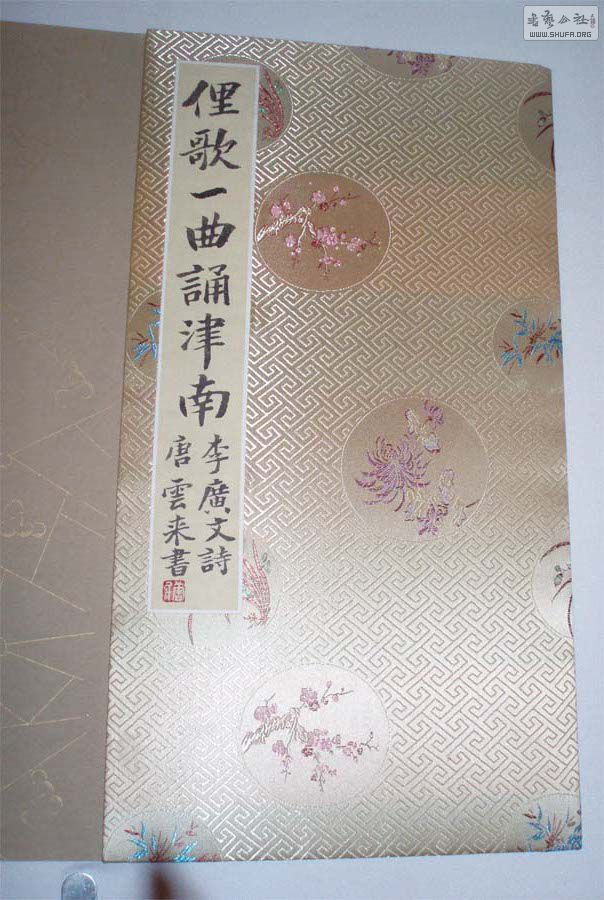 俚歌一曲誦津南
李廣文詩
唐雲来書
書藝公社
WWW.SHUFA.ORG